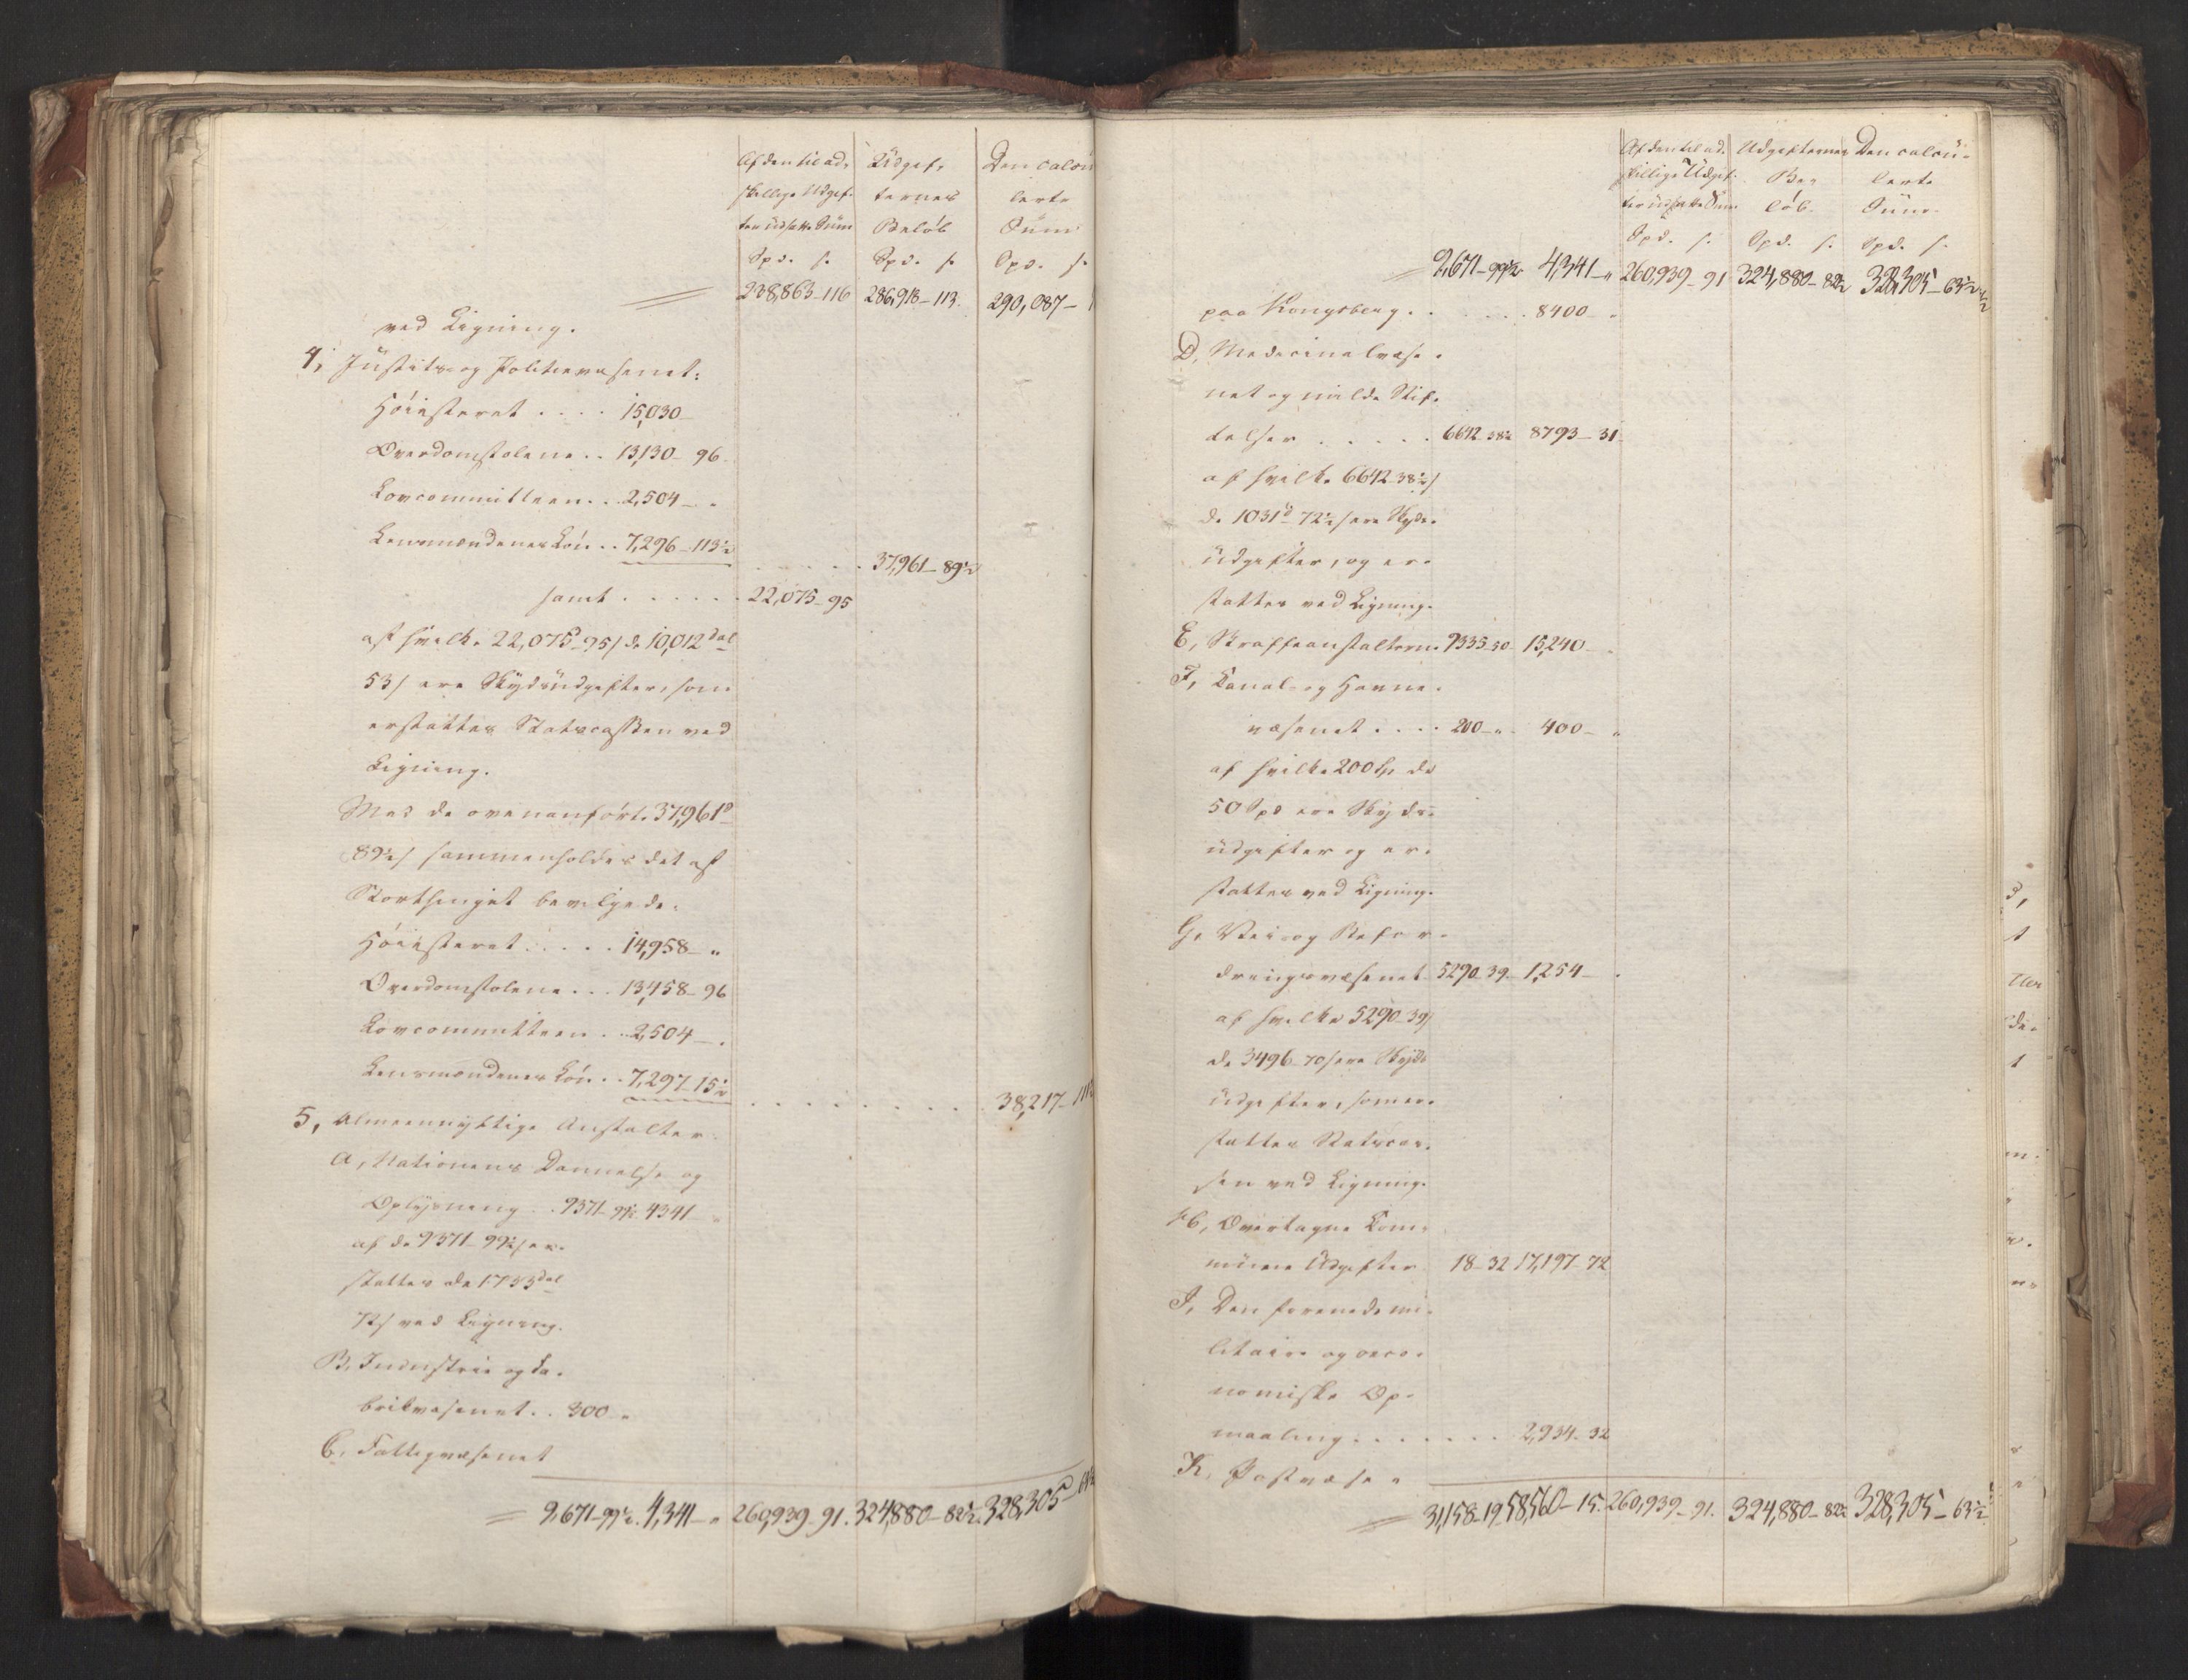 Af den til ad- Udgif- Den calcu
skillige Udgif- ternes lerte
ter udsatte Sum Beløb Sum
Spd. s. Spd. s. Spd. s.
238,863-116 286,918-113. 290,087-1
ved Ligning.
4, Justits- og Politievæsenet:
Høiesteret .... 15,030-
Overdomstolene .. 13,130-96-
Lovcommitteen .. 2,504-"
Lensmændenes Løn .. 7,296-113½ ..... 37,961-89½
samt ...... 22,075-95
af hvilke 22,075-95 s de 10,012 dal
53 s ere Skydsudgifter, som
erstattes Statscassen ved
Ligning.
Med de ovenanførte 37,961 d
89½ s sammenholdes det af
Storthinget bevilgede:
Høiesteret ..... 14,958-"
Overdomstolene ... 13,458-96
Lovcommitteen .. 2,504-.
Lensmændenes Løn .. 7,297-15½ ........ 38,217-
5, Almeennyttige Anstalter:
A, Nationens Dannelse og
Oplysning .. 9371-99½ 4341-"
af de 9371-99½ s er-
stattes de 1733 dal
72 s ved Ligning.
B, Industrie og Fa-
brikvæsenet .. 300-"
C, Fattigvæsenet
9,671-99½. 4,341-" 260,939-91. 324,880-82½. 328,305-
Af den til ad- Udgifternes Den calcu-
skillige Udgif- Be- lerte
ter udsatte Sum løb. Sum.
Spd. s. Spd. s. Spd. s.
9,671-99½ 4,341-" 260,939-91 324,880-82½ 328,305-63½
paa Kongsberg ....... 8400-"
D, Medecinalvæse-
net og milde Stif-
telser ..... 6642-38½ 8793-31-
af hvilke 6642-38½ s
de 1031 d 72½ s ere Skyds-
udgifter, og er-
stattes ved Ligning.
E, Straffeanstalterne 9335-50- 15,240-.
F, Canal- og Havne-
væsenet .... 200-". 400-"
af hvilke 200 Sp de
50 Spd ere Skyds-
udgifter og er-
stattes ved Ligning.
G, Vei- og Befor-
dringsvæsenet 5290-39- 1,254-.
af hvilke 5290-39 s
de 3496-70 s ere Skyds
udgifter, som er-
stattes Statscas-
sen ved Ligning.
H, Overtagne Com-
mune Udgifter 18-32 17,197-72
I, Den forenede mi-
litaire og oeco-
nomiske Op-
maaling ....... 2,934-32
K, Postvæse-
31,158-19 58,560-15. 260,939-91. 324,880-82½ 328,305-63½